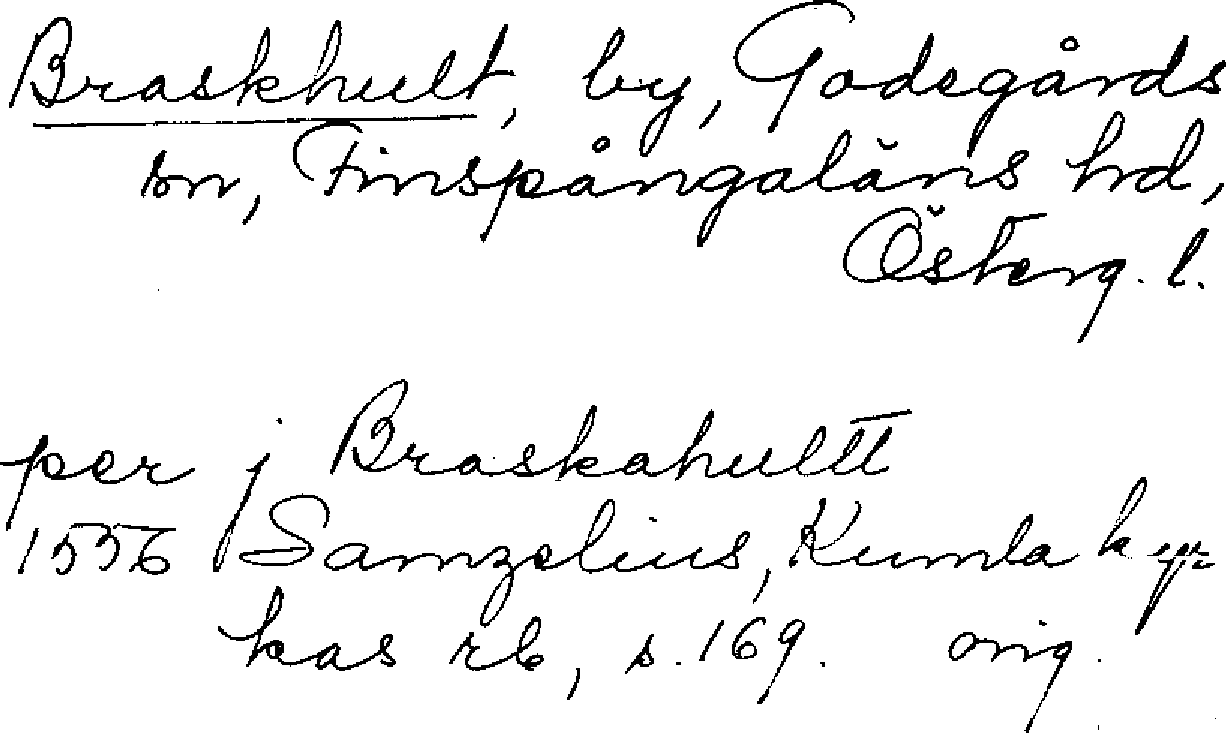 Braskhult, by, Godegårds
sn, Finspångaläns hd,
Österg. l.
per j Braskahultt
1556 Samzelius, Kumla kyr-
kas rb, s. 169. orig.